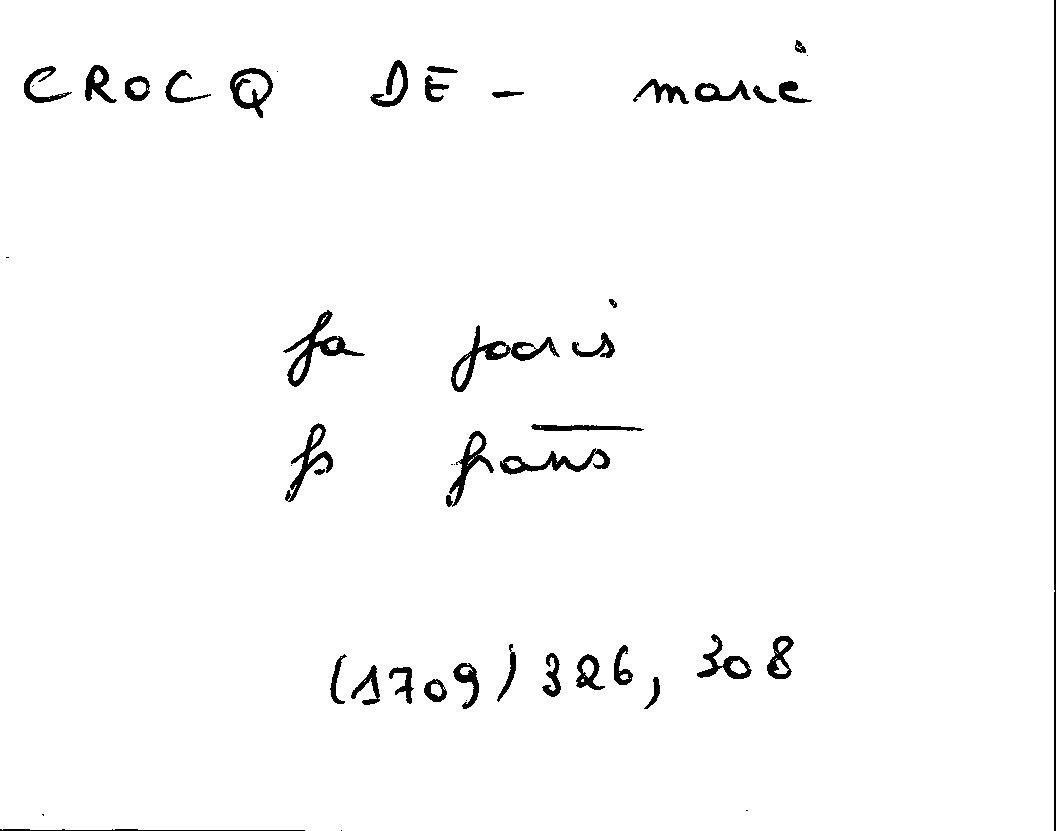 CROCQ DE - marie
fa jooris
fs frans
(1709) 326, 308